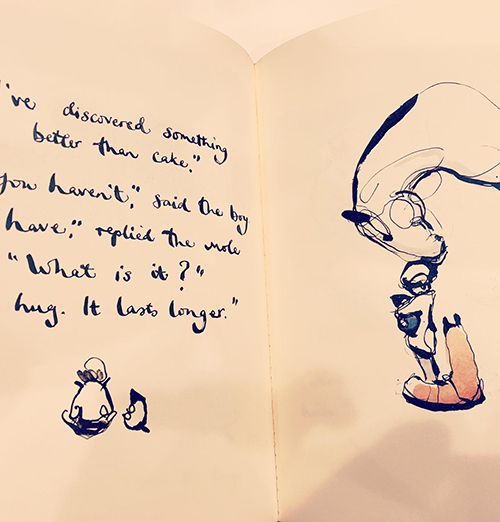 I've discovered something
better than cake."
you haven't," said the boy
have," replied the mole
"What is it?"
hug. It lasts longer."